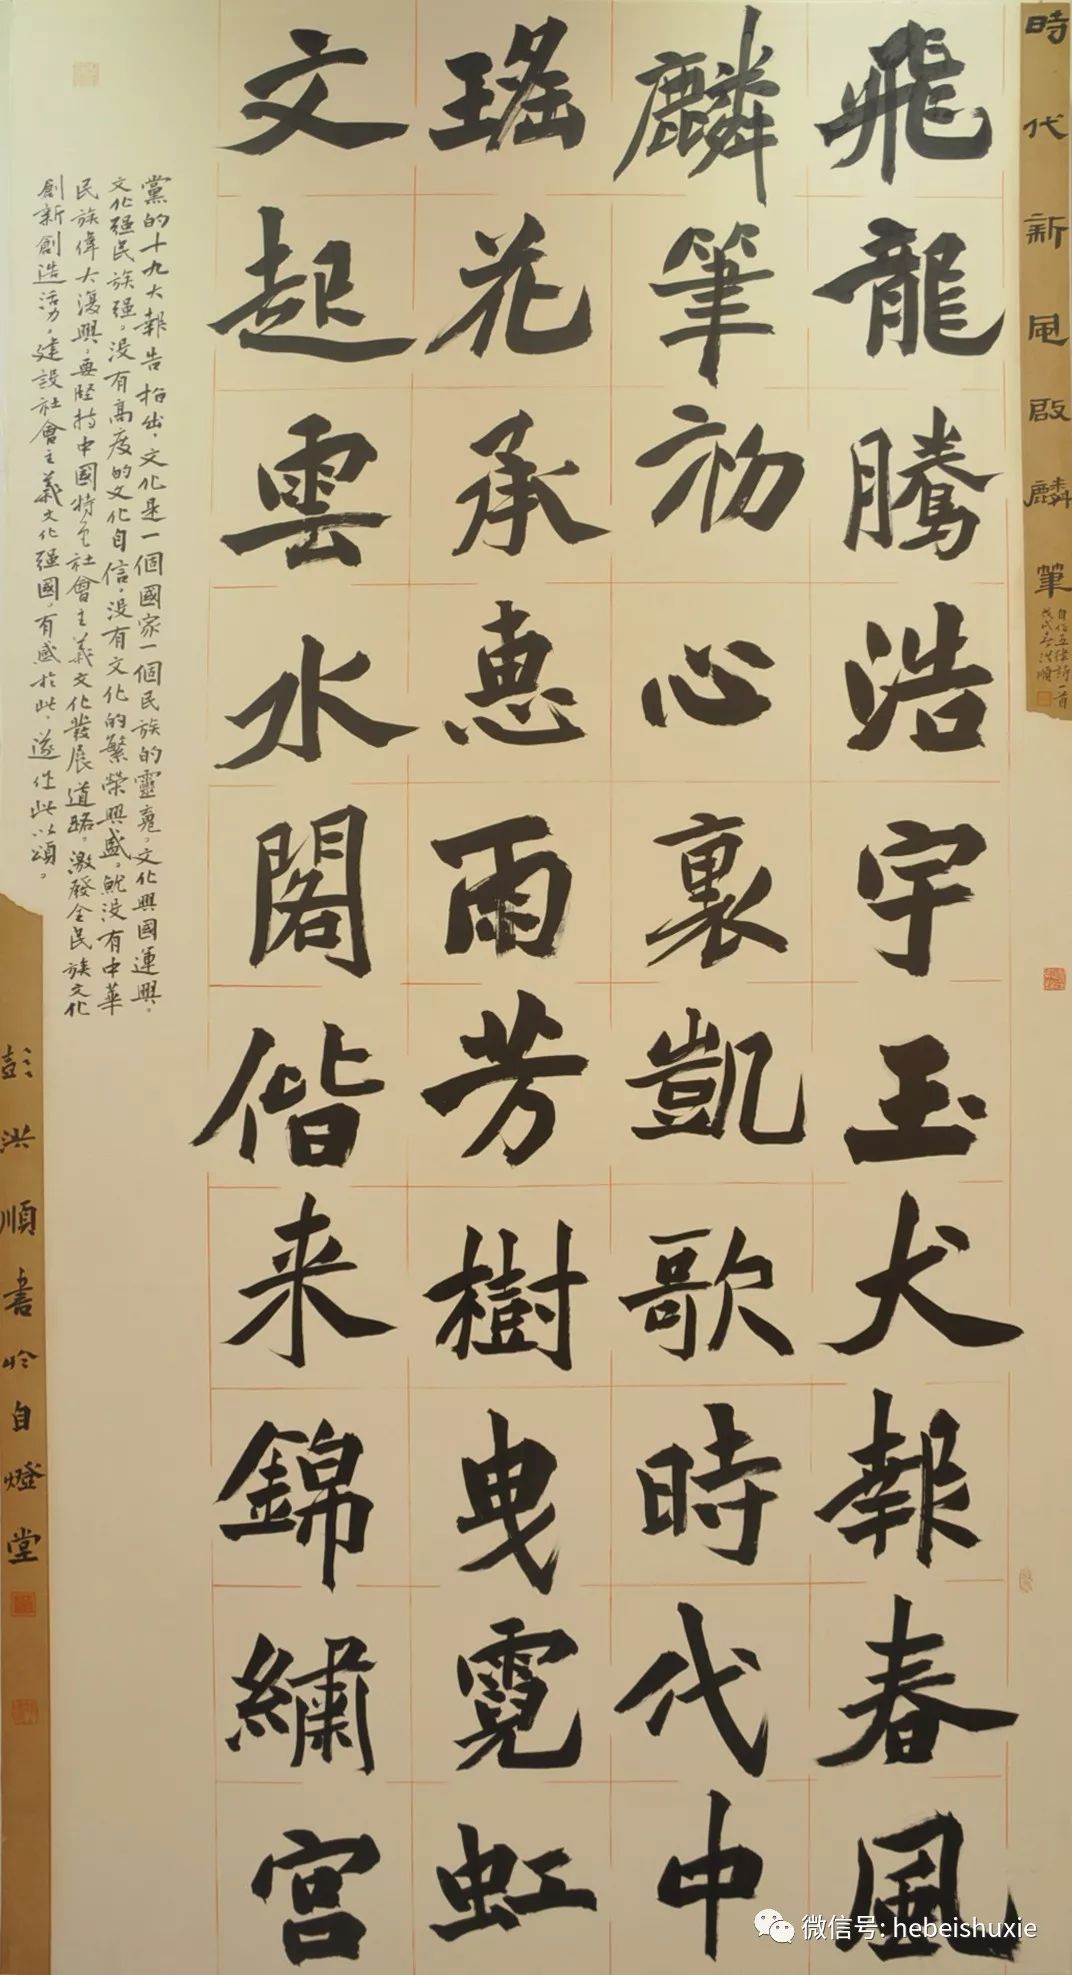 時代新風啟麟筆
自作五律詩一首
戊戌春洪順
飛龍騰浩宇玉犬報春風
麟筆初心裏凱歌時代中
瑤花承惠雨芳樹曳霓虹
文起雲水閣偕来錦繡宮
黨的十九大報告指出，文化是一個國家一個民族的靈魂。文化興國運興。
文化强民族强。没有高度的文化自信，没有文化的繁榮興盛。就没有中華
民族偉大復興，要堅持中國特色社會主義文化發展道路。激發全民族文化
創新創造活力，建設社會主義文化强國，有感於此，遂作此以頌。
彭洪順書於自燈堂
微信号: hebeishuxie